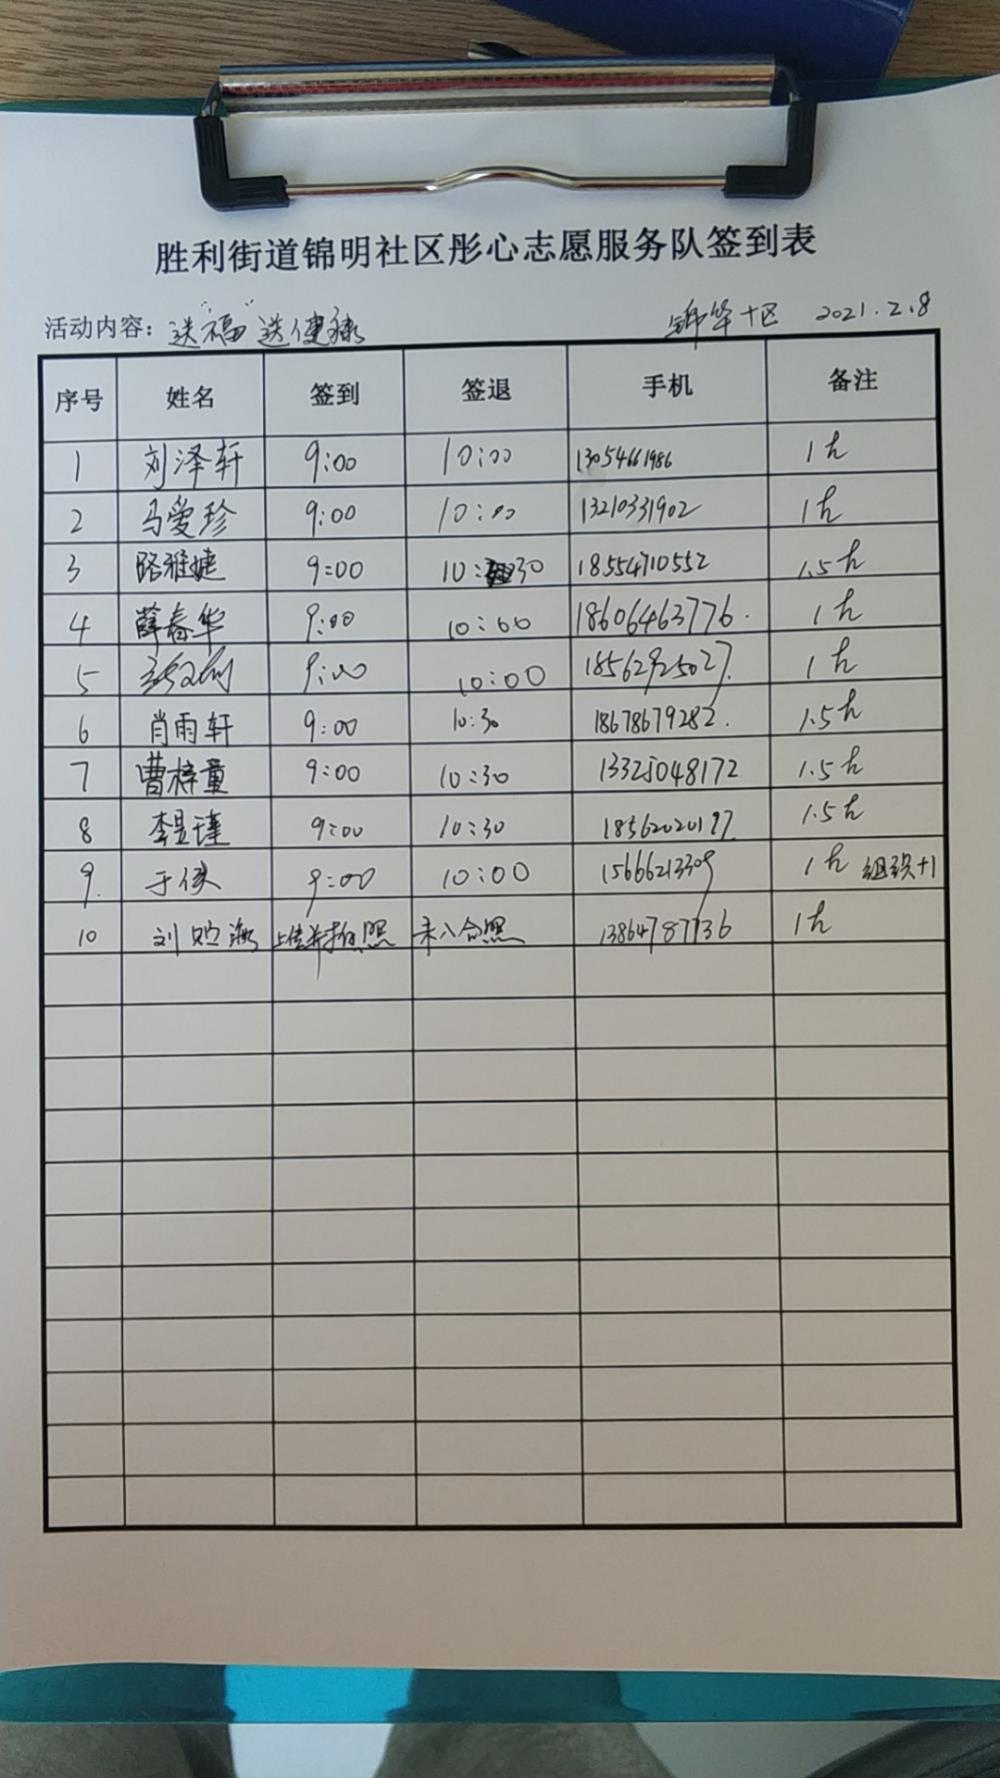 胜利街道锦明社区彤心志愿服务队签到表
活动内容：送“福”送健康 锦华十区 2021.2.8
序号 姓名 签到 签退 手机 备注
1 刘泽轩 9:00 10:00 13054661986 1h
2 马爱珍 9:00 10:00 13210331902 1h
3 路雅婕 9:00 10:30 18554710552 1.5h
4 薛春华 9:00 10:00 18606463776. 1h
5 9:00 10:00 18562925027. 1h
6 肖雨轩 9:00 10:30 18678679282. 1.5h
7 曹梓童 9:00 10:30 13325048172 1.5h
8 李昱瑾 9:00 10:30 18562020197 1.5h
9. 于侠 9:00 10:00 15666213309 1h 组织+1
10 刘 海 照 未入合照 13864787736 1h